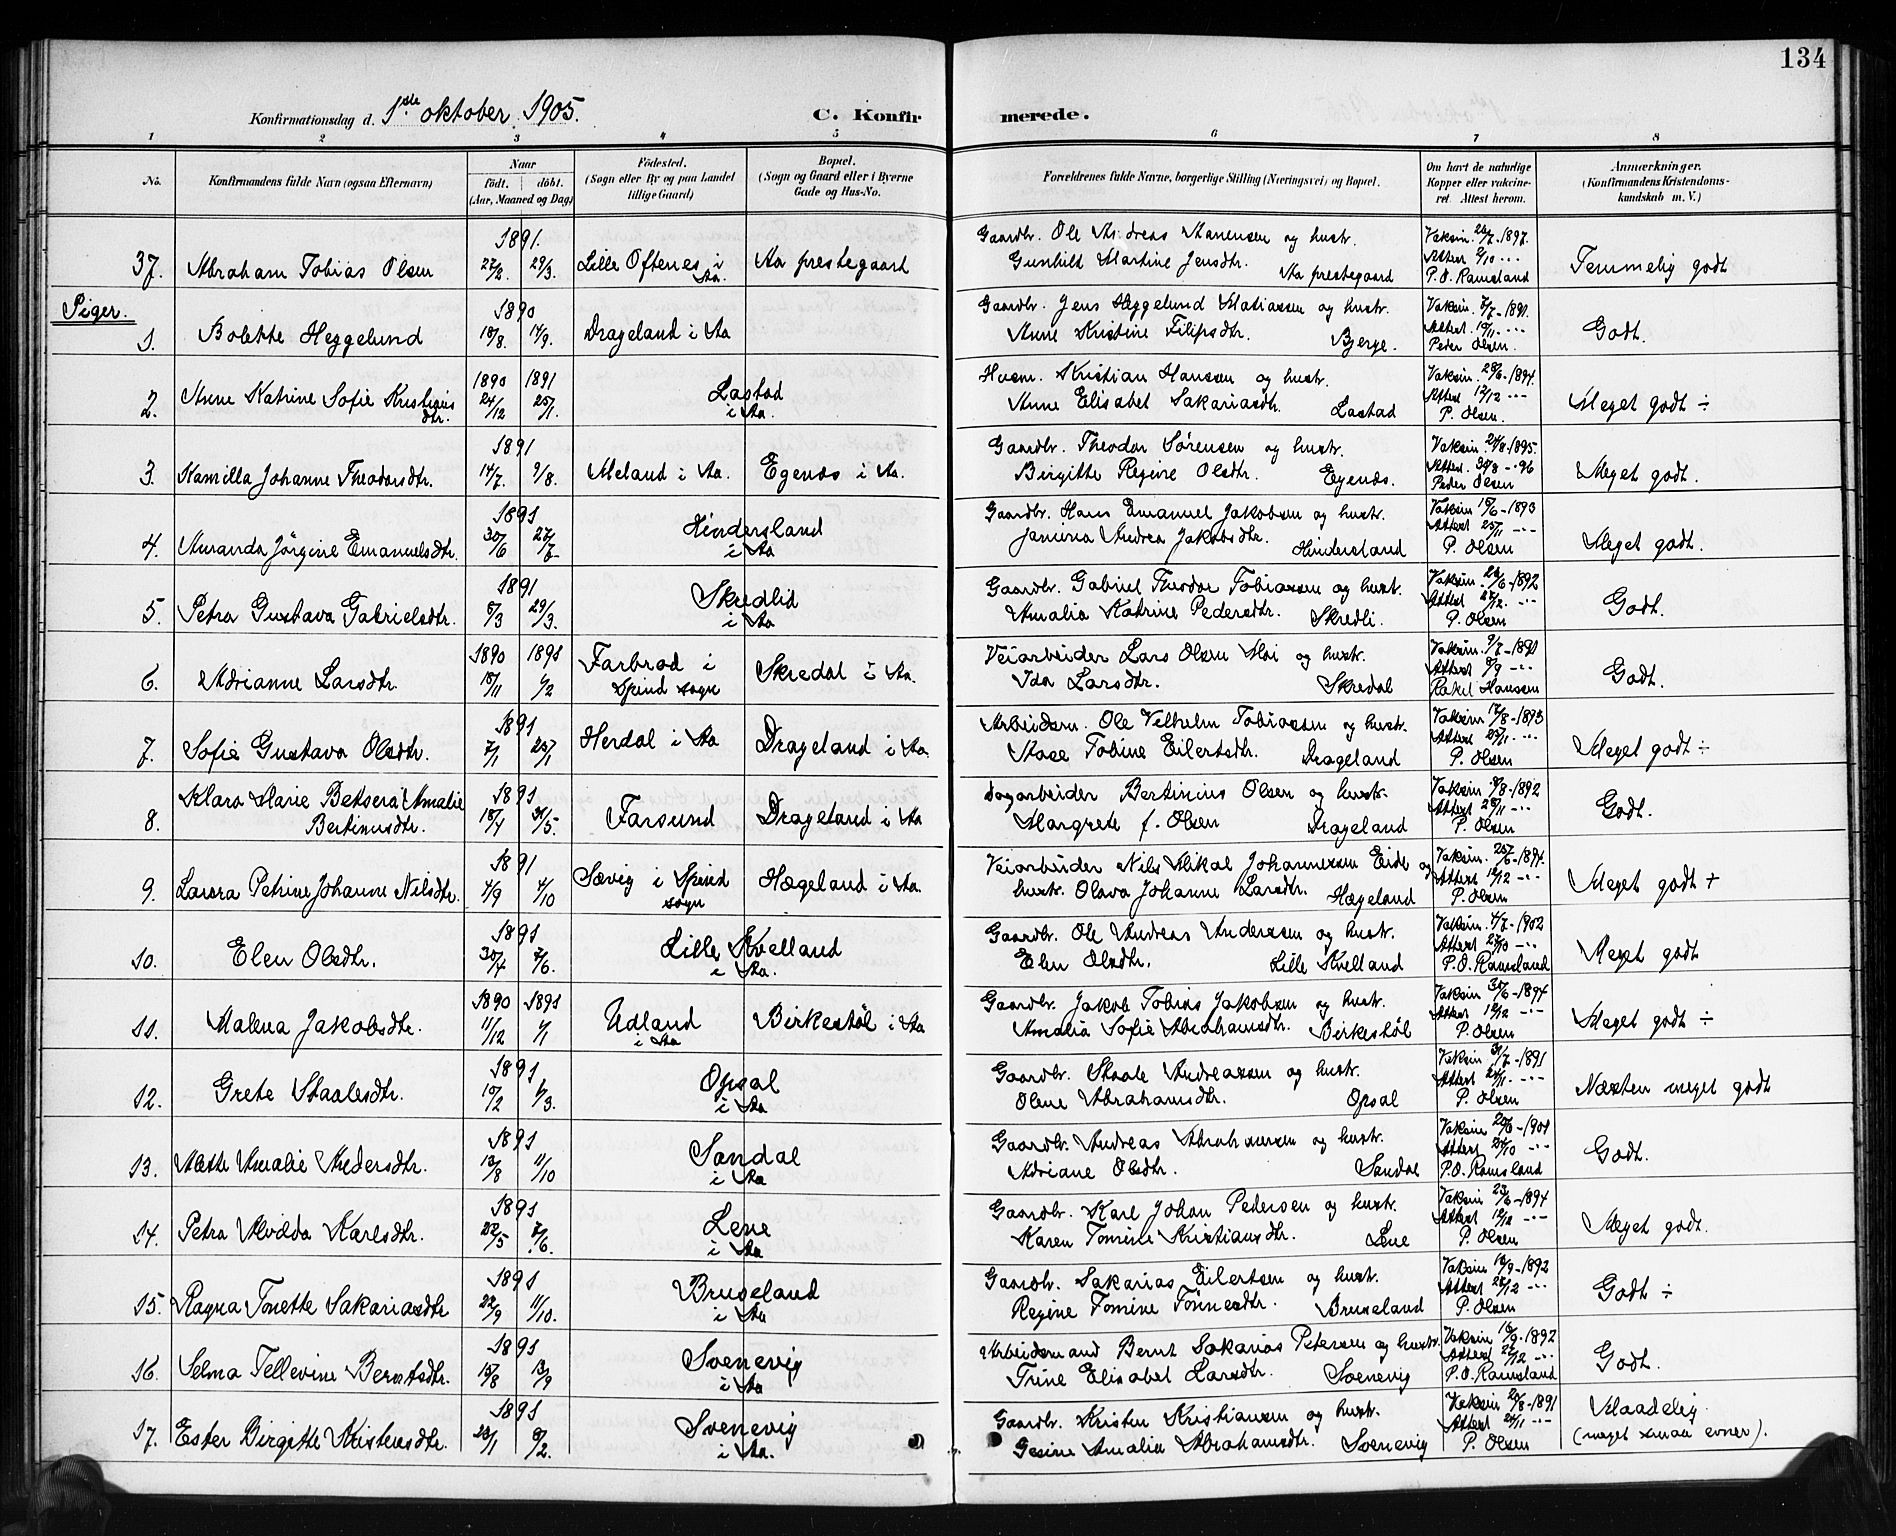 134
Konfirmationsdag d. 1ste oktober 1905.
C. Konfirmerede.
1 2 3 4 5 6 7 8
No.
Konfirmandens fulde Navn (ogsaa Efternavn)
Naar
födt. döbt.
(Aar, Maaned og Dag)
Födested.
(Sogn eller By og paa Landet tillige Gaard)
Bopæl.
(Sogn og Gaard eller i Byerne Gade og Hus-No.
Forældrenes fulde Navne, borgerlige Stilling (Næringsvei) og Bopæl.
Om havt de naturlige Kopper eller vakcineret. Attest herom.
Anmærkninger.
(Konfirmandens Kristendomskundskab m. V.)
37. Abraham Tobias Olsen 1891. 29/3. Lille Oftenes i Aa. Aa prestegaard
Gaardbr. Ole Andreas Aanensen og hustr. Gunhild Martine Jensdtr. Aa prestegaard
Vaksin. 1897. Attest 9/10 P. O. Ramsland
Temmelig godt
Piger.
1. Bolette Heggelund 1890 18/8. 14/9. Drageland i Aa
Gaardbr. Jens Heggelund Matiassen og hustr. Anne Kristine Filipsdtr. Bjerge.
Vaksin. 1891. Attest Peder Olsen.
Godt.
2. Anne Katrine Sofie Kristiansdtr. 1890 24/12 1891 25/1. Lastad i Aa.
Husm. Kristian Hansen og hustr. Anne Elisabet Sakariasdtr. Lastad
Vaksin. 1894. Attest 12/12 P. Olsen.
Meget godt ÷
3. Kamilla Johanne Theodorsdtr. 1891 14/7. 9/8. Meland i Aa. Egenæs i Aa.
Gaardbr. Theodor Sørensen og hustr. Birgitte Regine Olsdtr. Egenæs.
Vaksin. 1895. Attest 96 Peder Olsen
Meget godt.
4. Amanda Jörgine Emanuelsdtr. 1891 30/6 27/7. Hindersland i Aa
Gaardbr. Hans Emanuel Jakobsen og hustr. Janina Andrea Jakobsdtr. Hindersland
Vaksin 1893 Attest 25/11 P. Olsen
Meget godt.
5. Petra Gustava Gabrielsdtr. 1891 8/3 29/3. Skredlid i Aa
Gaardbr. Gabriel Theodor Tobiassen og hustr. Amalia Katrine Pedersdtr. Skredli.
Vaksin. 1892 Attest P. Olsen
Godt.
6. Adrianne Larsdtr. 1890 18/11 1891 1/2 Farbrod i Spind sogn Skredal i Aa.
Veiarbeider Lars Olsen Moi og hustr. Ida Larsdtr. Skredal
Vaksin. 9/7 - 1891 Attest Rakel Hansen
Godt.
7. Sofie Gustava Olsdtr. 1891 7/1 25/1 Herdal i Aa Drageland i Aa.
Arbeidsm. Ole Vilhelm Tobiassen og hustr. Stase Tobine Eilertsdtr. Drageland
Vaksin 1893 Attest 25/11 P. Olsen
Meget godt ÷
8. Klara Marie Betsera Amalie Bertinusdtr. 1891 18/4 31/5. Farsund Drageland i Aa
Dagarbeider Bertinius Olsen og hustr. Margrete f. Olsen Drageland
Vaksin. 1892 Attest P. Olsen
Godt.
9. Laura Petrine Johanne Nilsdtr. 1891 4/9 4/10 Sævig i Spind sogn Hægeland i Aa.
Veiarbeider Nils Mikal Johannessen Eide og hustr. Olava Johanne Larsdtr. Hægeland
Vaksin. 1894. Attest 12/12 P. Olsen
Meget godt +
10. Elen Olsdtr. 1891 30/4 7/6. Lille Kvelland i Aa.
Gaardbr. Ole Andreas Anderssen og hustr. Elen Olsdtr. Lille Kvelland
Vaksin. 4/7 - 1902 Attest P. O. Ramsland
Meget godt
11. Malena Jakobsdtr. 1890 11/12 1891 1/1 Udland i Aa Birkestöl i Aa
Gaardbr. Jakob Tobias Jakobsen og hustr. Amalia Sofie Abrahamsdtr. Birkestöl
Vaksin 1894 Attest 12/12 P. Olsen
Meget godt ÷
12. Grete Staalesdtr. 1891 15/2 1/3. Opsal i Aa
Gaardbr. Staale Andreassen og hustr. Olene Abrahamsdtr. Opsal
Vaksin 31/7 - 1891 Attest P. Olsen
Næsten meget godt
13. Alette Amalie Andersdtr. 1891 13/8 11/10 Sandal i Aa
Gaardbr. Andreas Abrahamsen og hustr. Adriane Olsdtr. Sandal
Vaksin 1901 Attest P. O. Ramsland
Godt.
14. Petra Alvilda Karlsdtr. 1891 22/5 7/6. Lene i Aa
Gaardbr. Karl Johan Pedersen og hustr. Karen Tomine Kristiansdtr. Lene
Vaksin 23/6 - 1894 Attest 12/12 P. Olsen
Meget godt.
15. Ragna Tonette Sakariasdtr 1891 22/9 11/10. Bruseland i Aa
Gaardbr. Sakarias Eilertsen og hustr. Regine Tomine Tönnesdtr. Bruseland
Vaksin 1892 Attest P. Olsen
Godt ÷
16. Selma Tellevine Berntsdtr. 1891 15/8 13/9 Svenevig i Aa
Arbeidsmand Bernt Sakarias Petersen og hustr. Trine Elisabet Larsdtr. Svenevig
Vaksin 1892 Attest P. O. Ramsland
Godt.
17. Ester Birgitte Kristensdtr. 1891 23/1 8/2. Svenevig i Aa.
Gaardbr. Kristen Kristiansen og hustr. Gesine Amalia Abrahamsdtr. Svenevig
Vaksin 1891 Attest 24/11 P. Olsen
Maadelig (meget smaa evner).